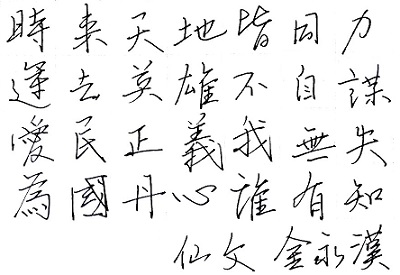 時來天地皆同力
運去英雄不自謀
愛民正義我無失
為國丹心誰有知
仙文 金永漢